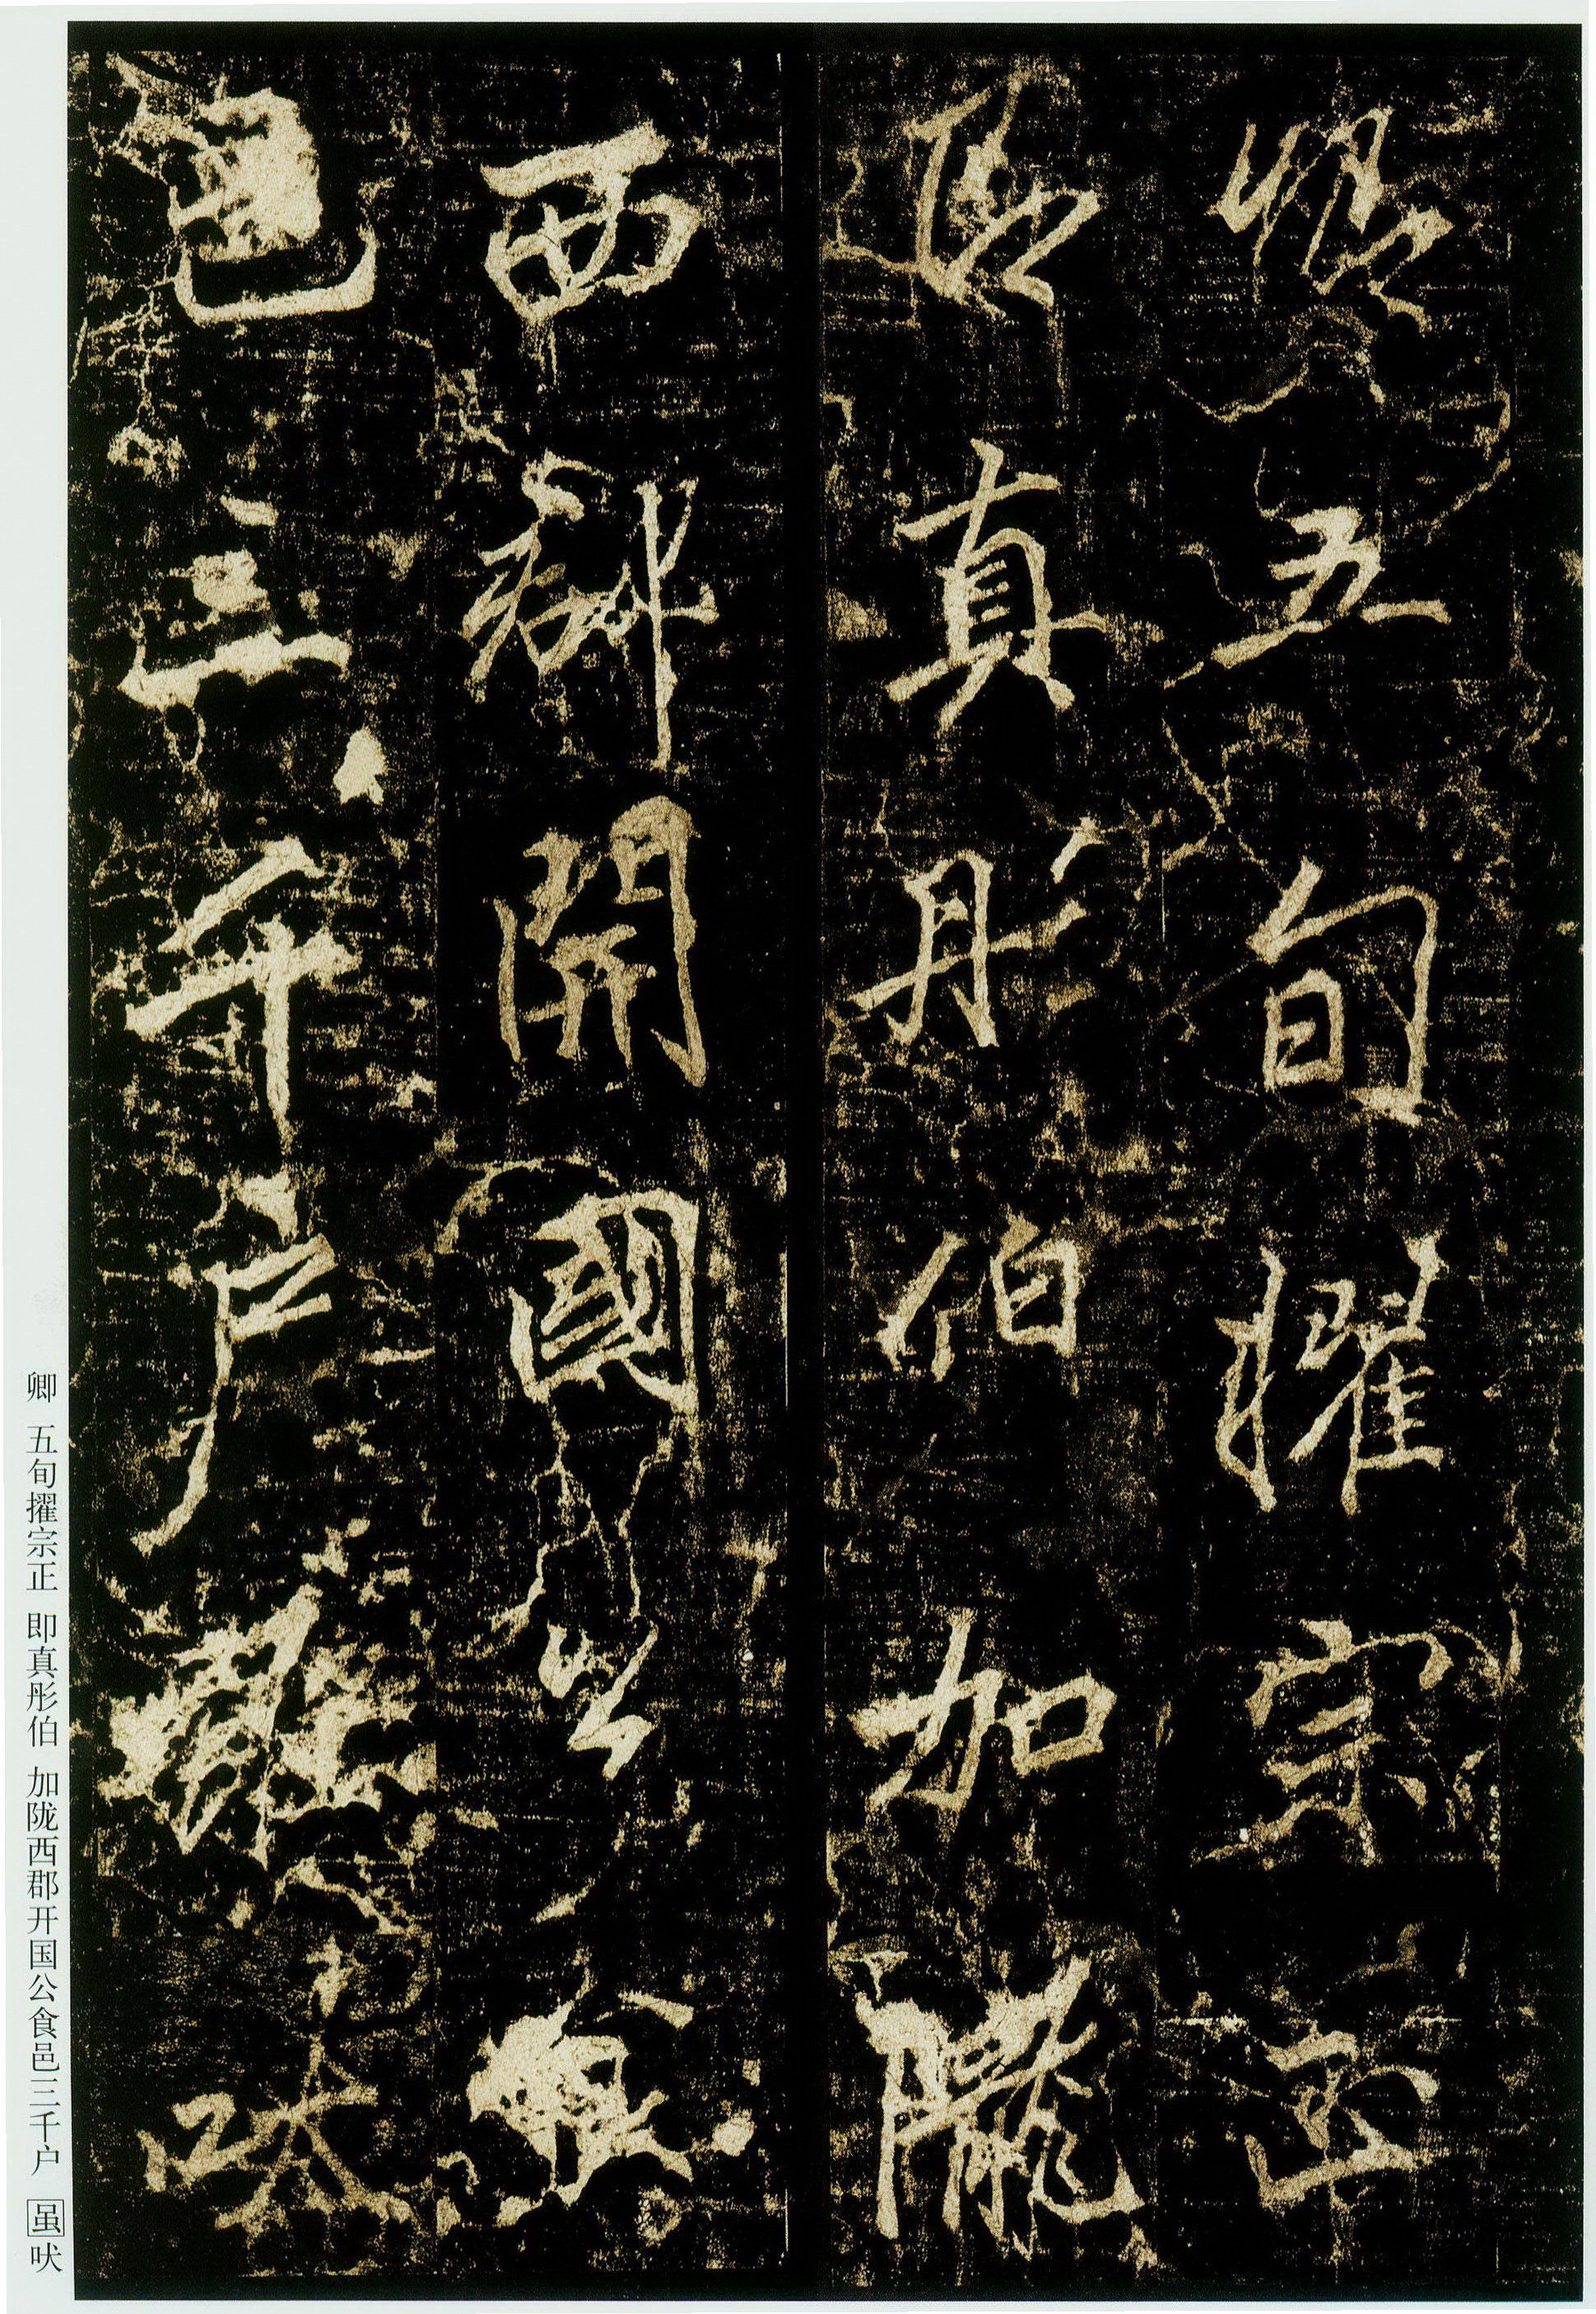 卿五旬擢宗正
即真彤伯加隴
西郡開國公食
邑三千户雖吠
卿 五旬擢宗正 即真彤伯 加陇西郡开国公食邑三千户 虽吠